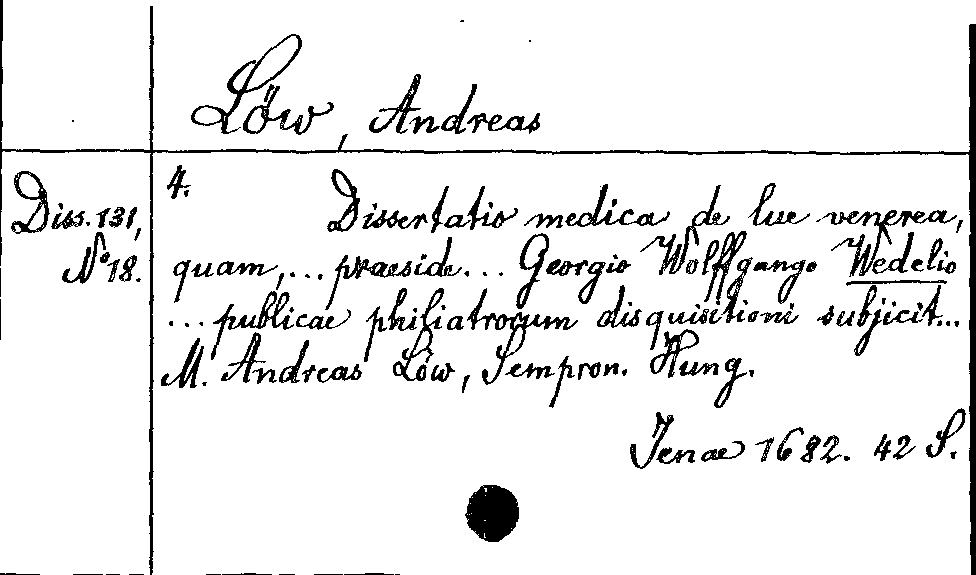 Löw, Andreas
4.
Diss. 131, Dissertatio medica de lue venerea,
No 18. quam, ... praeside ... Georgio Wolffgango Wedelio
... publicae philiatrorum disquisitioni subjicit ...
M. Andreas Löw, Sempron. Hung.
Jenae 1682. 42 S.